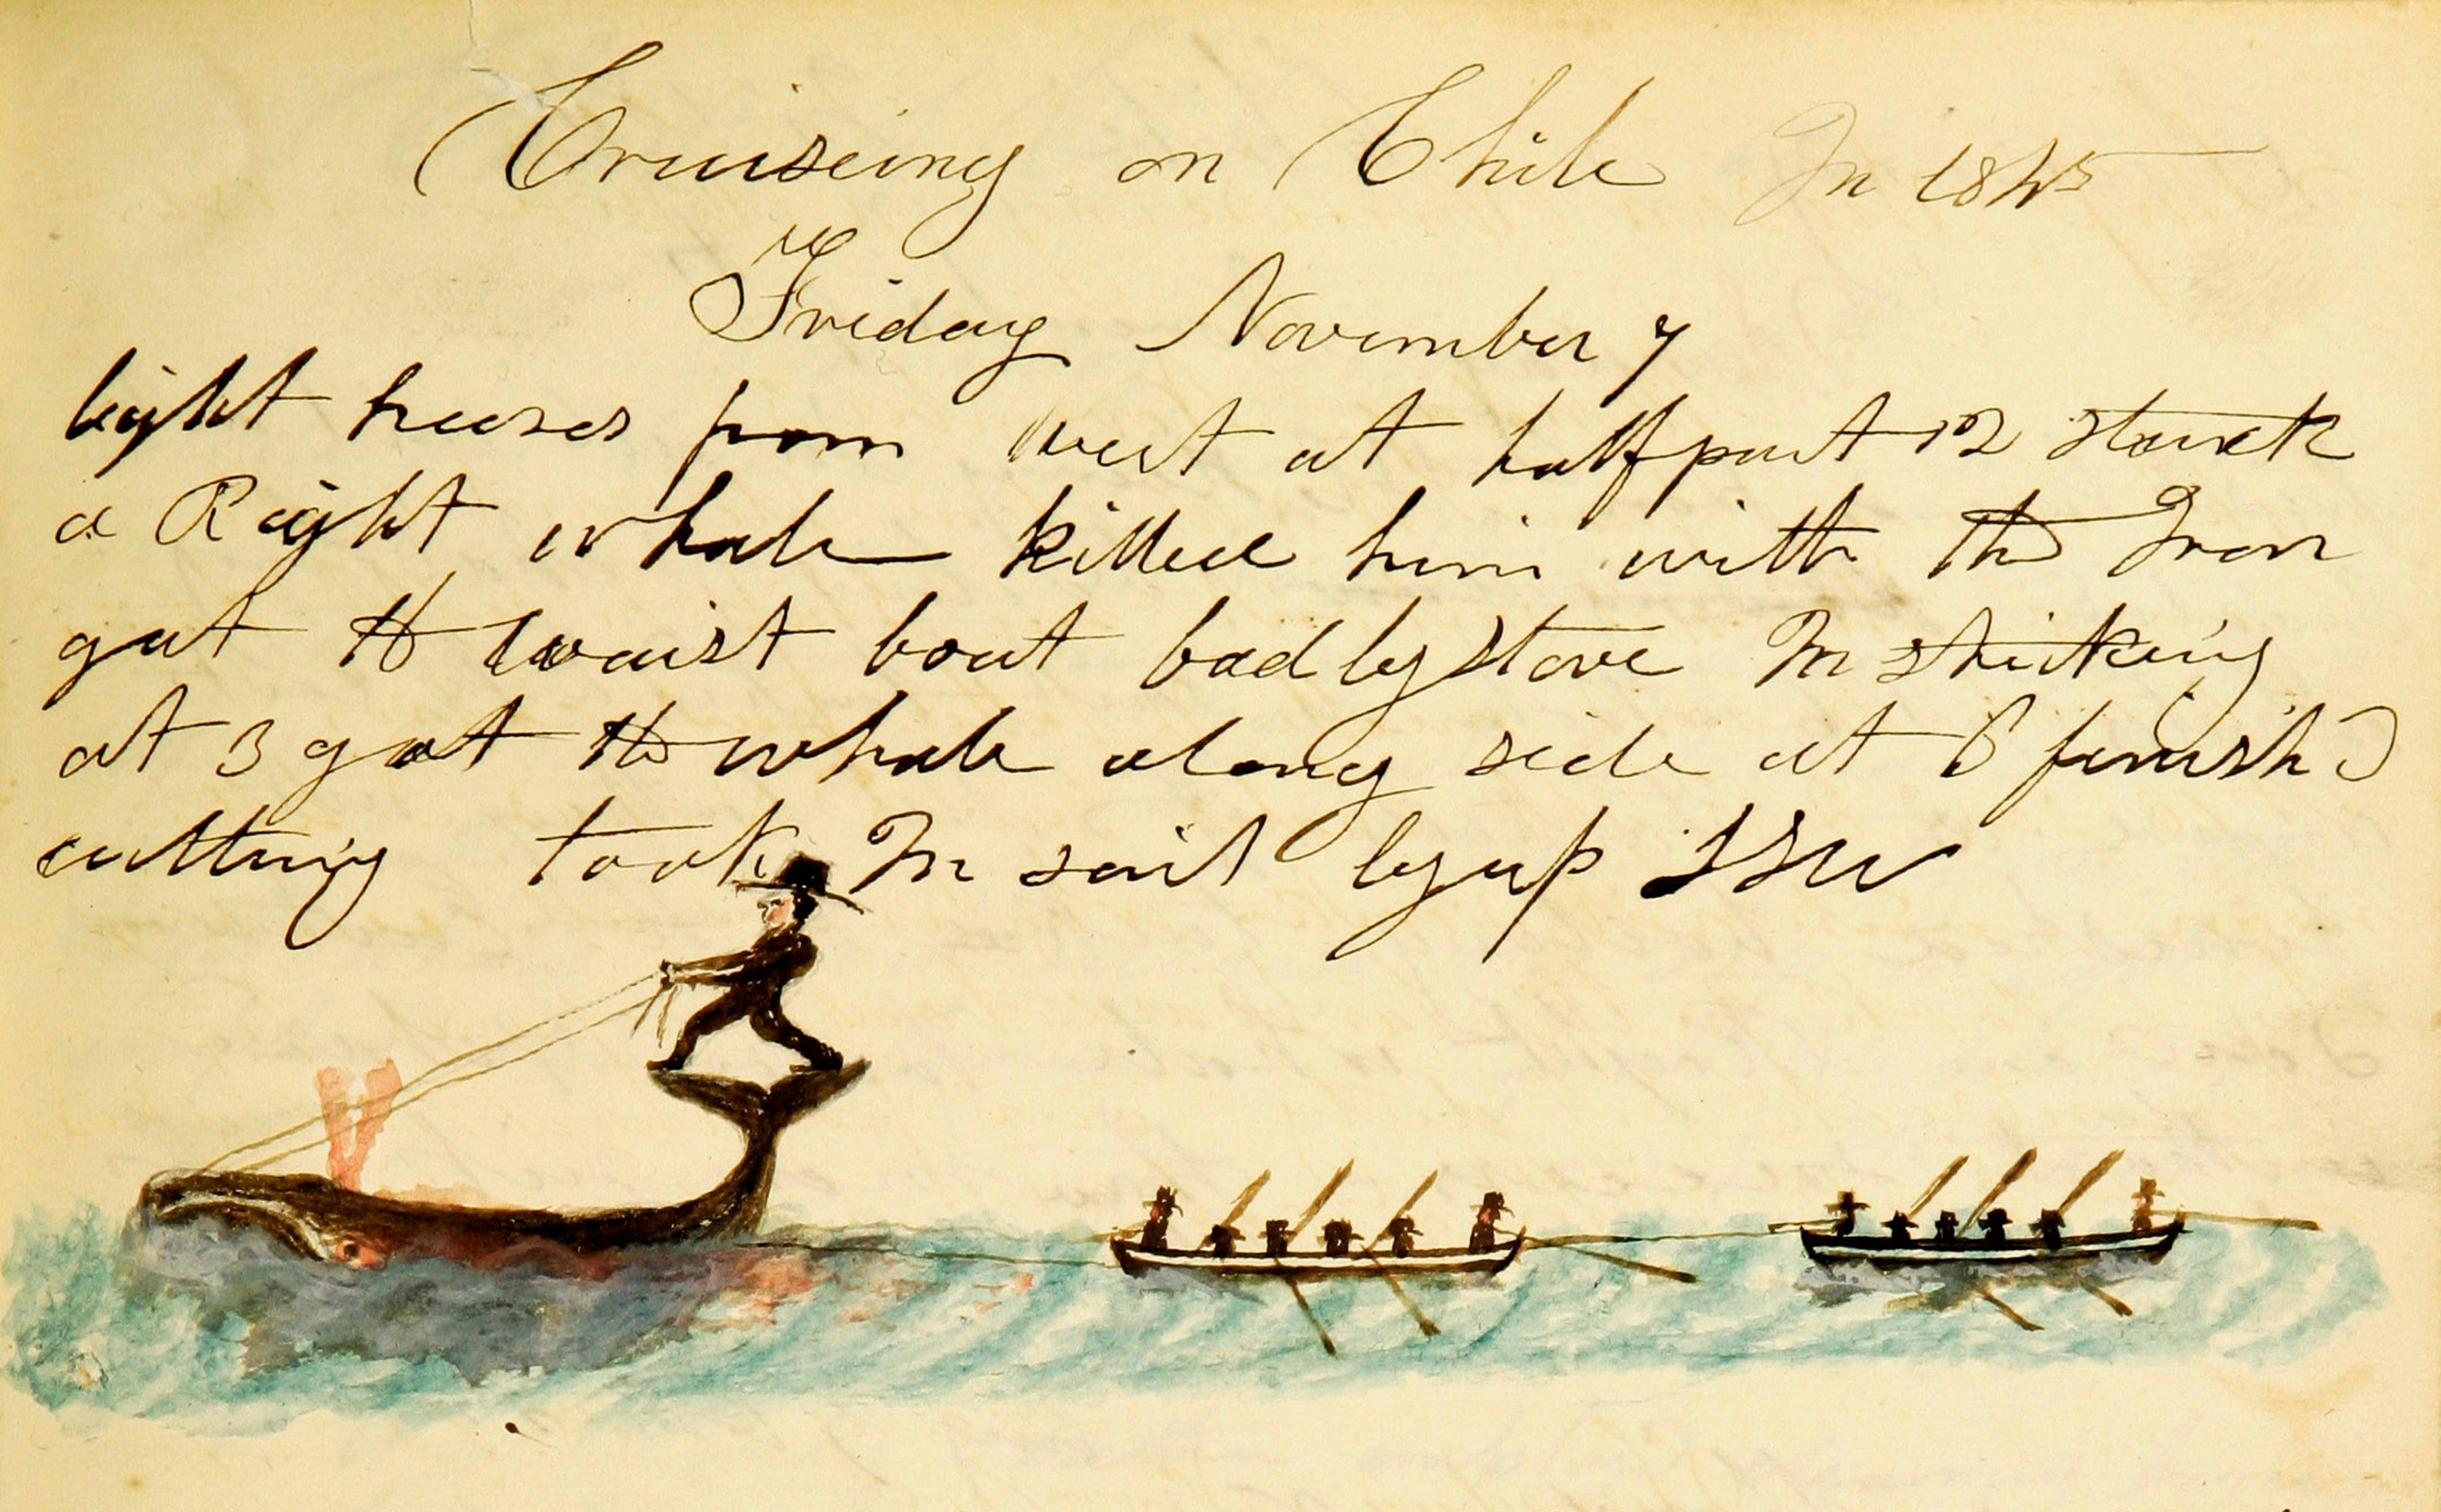 Cruiseing on Chile In 1845
Friday November 7
light breeses from west at half past 12 struck
a Right whale killed him with the Iron
got the waist boat badly stove In strikeing
at 3 got the whale along side at 6 finishd
cutting took In sail by up SSW